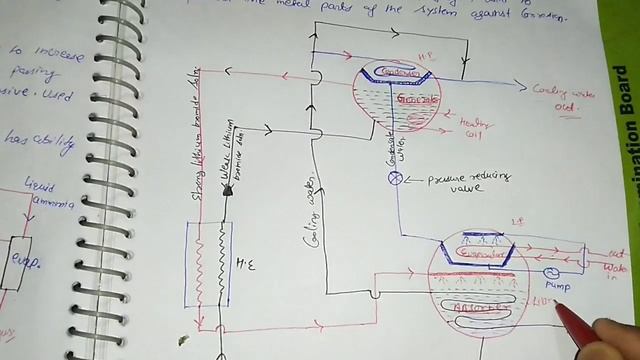 the metal parts of the system against corrosion.
to increase
passing
used
has ability
Liquid
ammonia
evap.
Strong lithium bromide soln.
Weak lithium
bromide soln.
H.E
Cooling water
H.P
Condenser
Generator
Heating
coil
Cooling water
out
Condensed
water
pressure reducing
valve
L.P
Evaporator
out
water
in
pump
Absorber
LiBr
mination Board